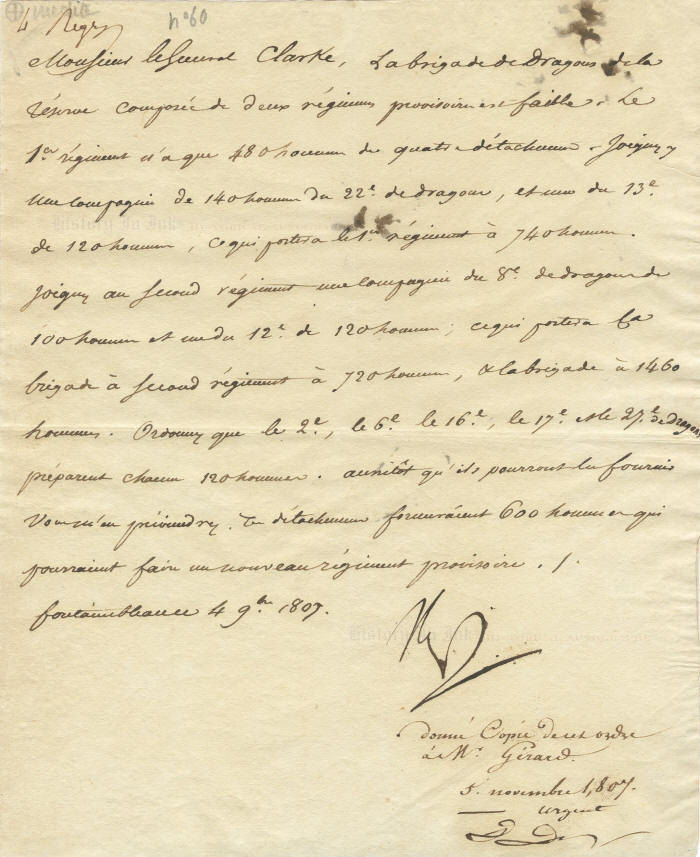 n° 60
Monsieur le General Clarke, La brigade de Dragons de la
réserve composée de deux régimens provisoires est faible. Le
1er régiment n'a que 480 hommes de quatre détachemens. Joignez y
une compagnie de 140 hommes du 22e de dragons, et une du 13e
de 120 hommes, ce qui portera le 1er régiment à 740 hommes.
Joignez au second régiment une compagnie du 8e de dragons de
100 hommes et une du 12e de 120 hommes; ce qui portera la
brigade à second régiment à 720 hommes, & la brigade à 1460
hommes. Ordonnez que le 2e, le 6e le 16e, le 17e et le 27e de dragons
préparent chacun 120 hommes. aussitôt qu'ils pourront les fournir
vous m'en préviendrez. Ces détachemens formeraient 600 hommes qui
pourraient faire un nouveau régiment provisoire. /.
fontainebleau ce 4 9bre 1807.
donné Copie de cet ordre
à Mr Gérard.
5. novembre 1,807.
urgent
History In Ink